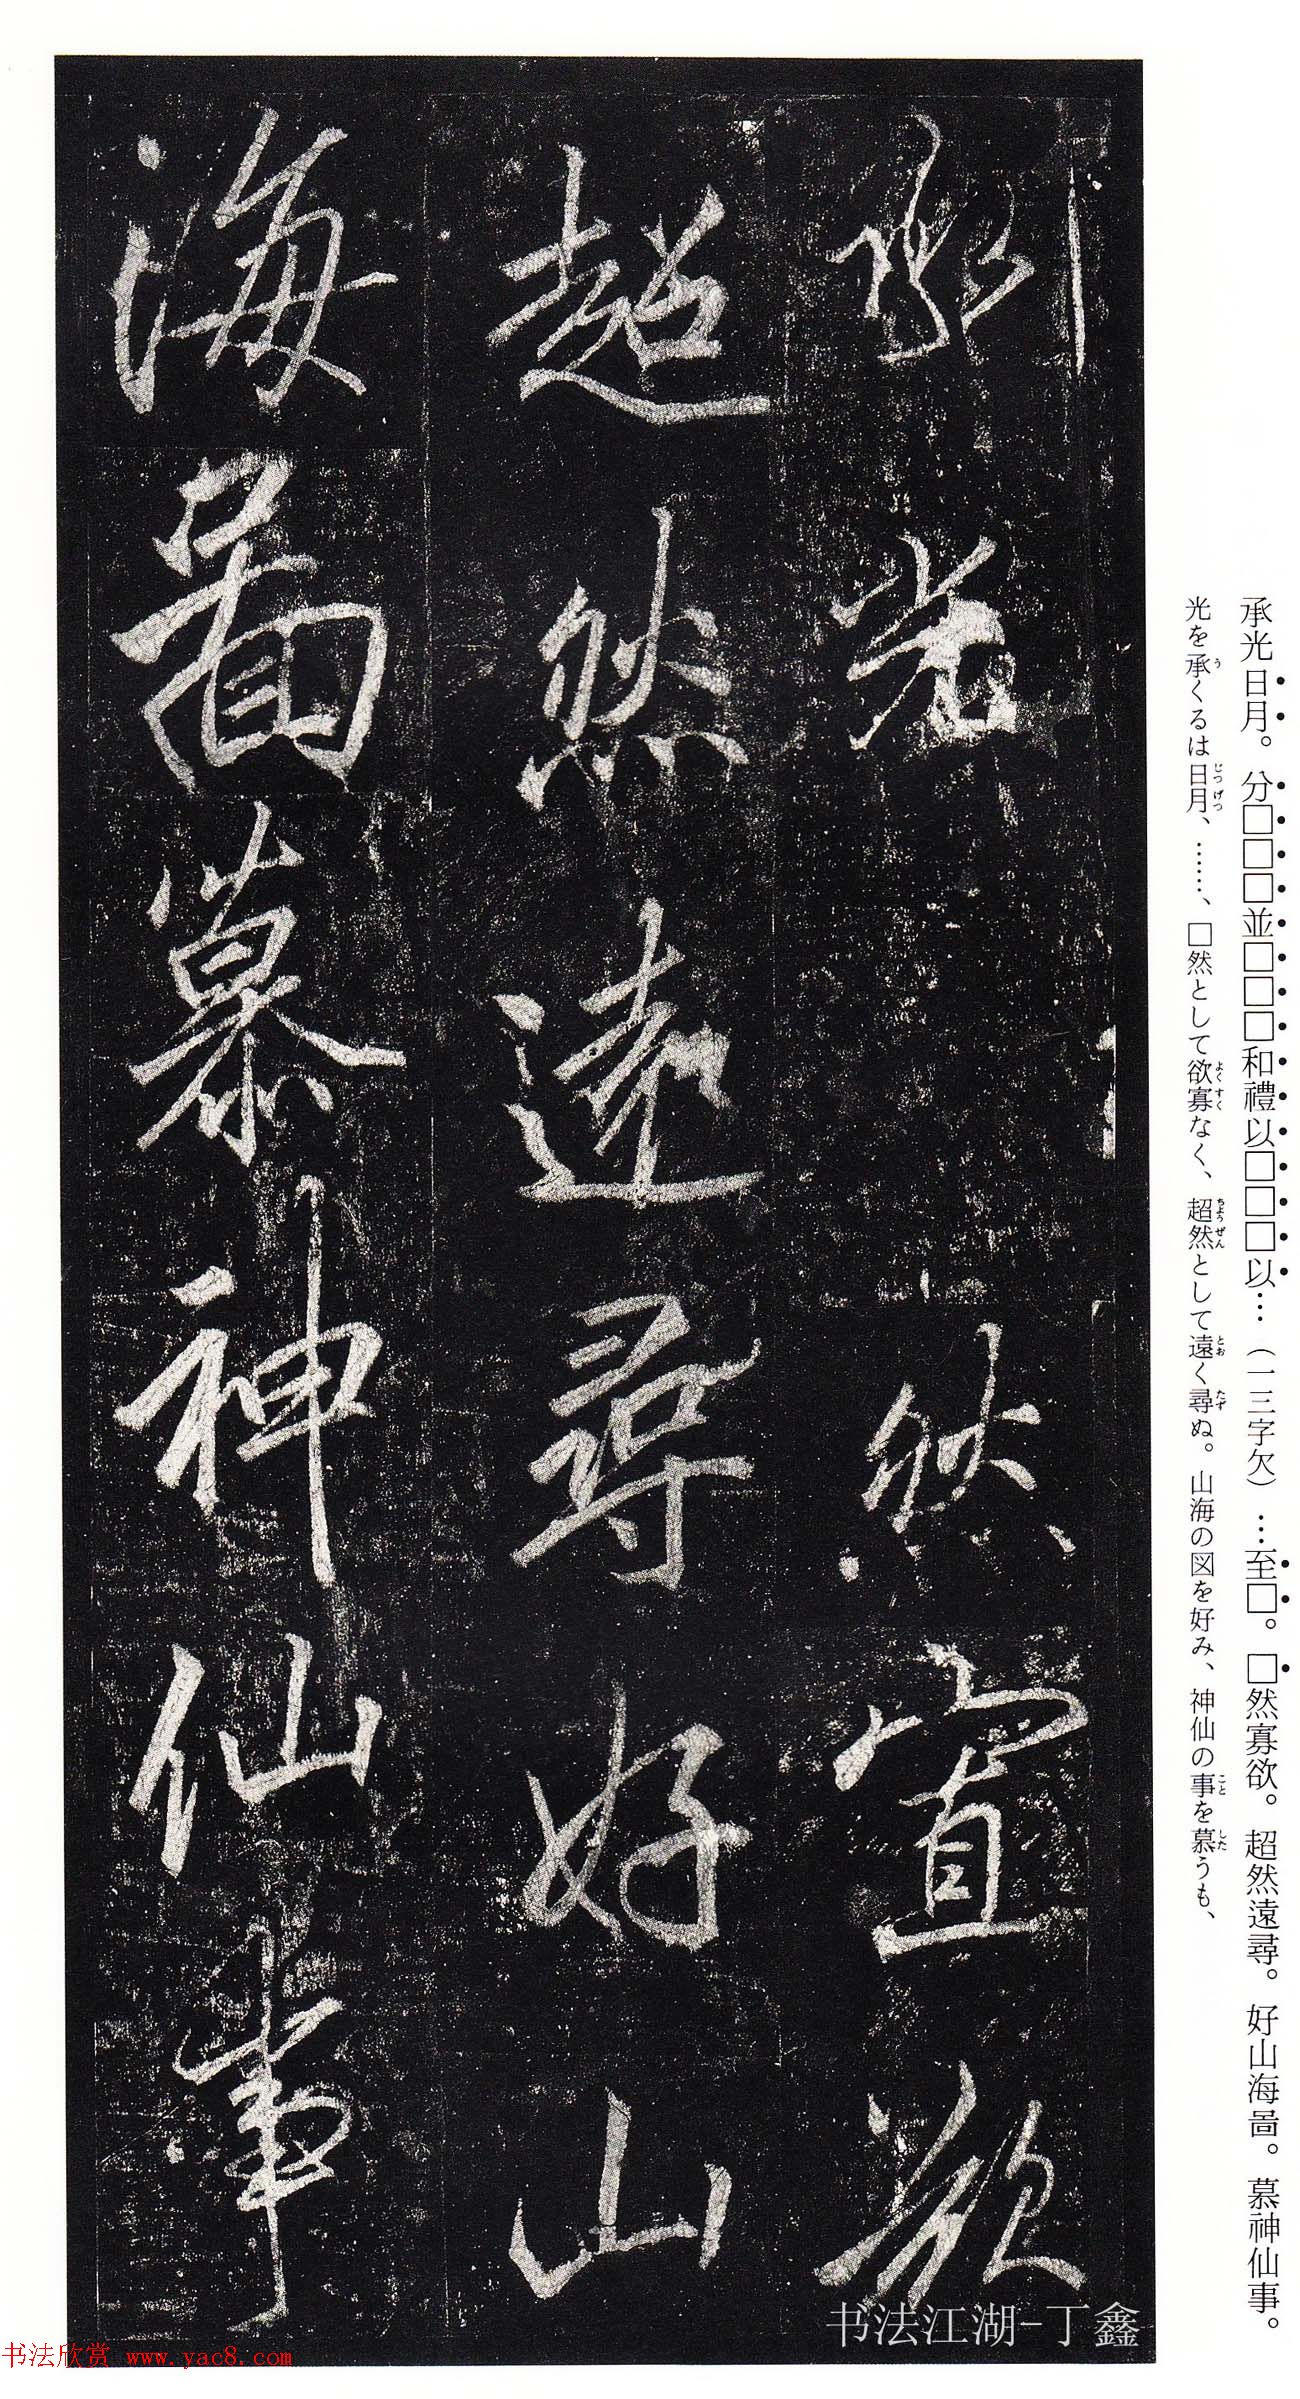 承光日月。分□□□並□□□和禮以□□□以…（一三字欠）…至□。□然寡欲。超然遠尋。好山海啚。慕神仙事。
光を承くるは日月、……、□然として欲寡なく、超然として遠く尋ぬ。山海の図を好み、神仙の事を慕うも、
承光然寡欲
超然遠尋好山
海啚慕神仙事
书法江湖-丁鑫
书法欣赏 www.yac8.com